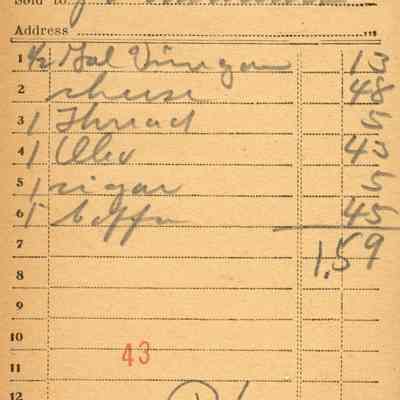 Sold to
Address
1 1/2 Gal Vinegar 13
2 cheese 48
3 1 Thread 5
4 1 Oleo 43
5 1 sigar 5
6 1 coffe 45
7 1.59
8
9
10
43
11
12